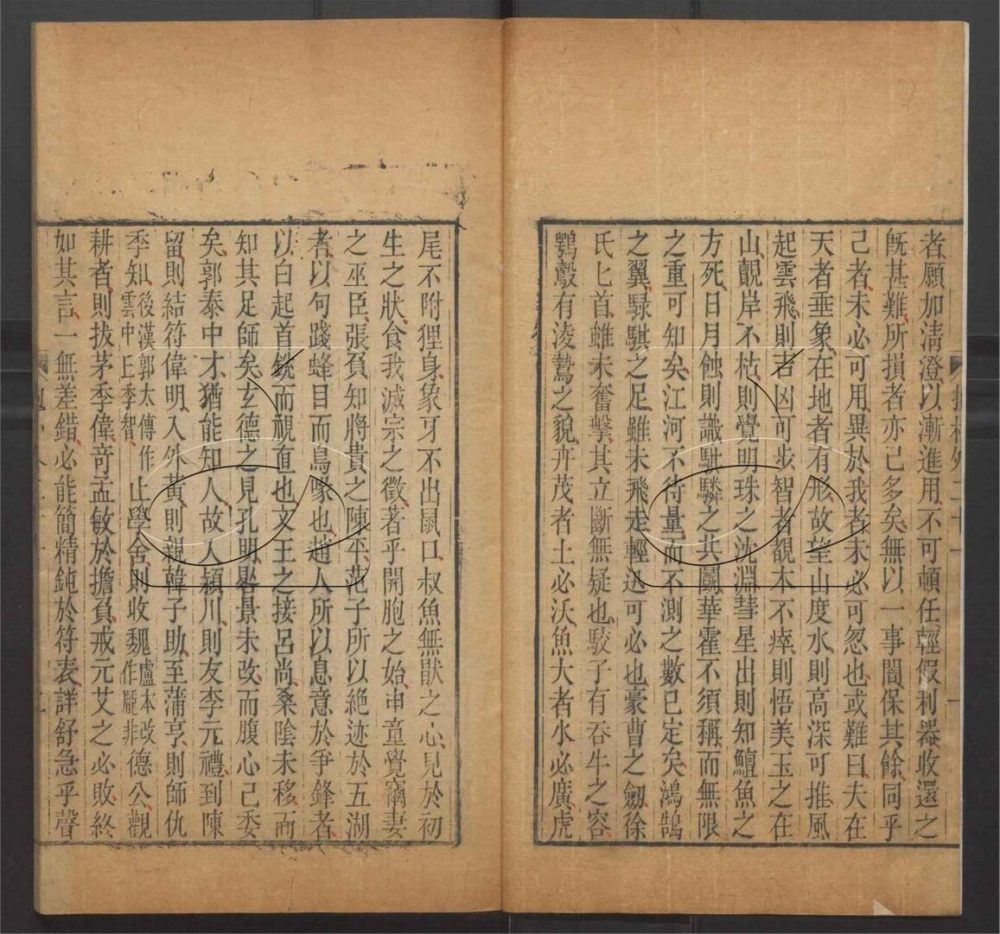 者願加清澄以漸進用不可頓任輕假利器收還之
旣甚難所損者亦已多矣無以一事闇保其餘同乎
己者未必可用異於我者未必可忽也或難曰夫在
天者垂象在地者有形故望山度水則高深可推風
起雲飛則吉凶可步智者覩木不瘁則悟美玉之在
山覿岸不枯則覺明珠之沈淵彗星出則知鱣魚之
方死日月蝕則識騏驎之共鬭華霍不須稱而無限
之重可知矣江河不待量而不測之數已定矣鴻鵠
之翼騄騏之足雖未飛走輕迅可必也豪曹之劒徐
氏匕首雖未奮擊其立斷無疑也駮子有吞牛之容
鶚鷇有淩鷙之貌卉茂者土必沃魚大者水必廣虎
尾不附狸身象牙不出鼠口叔魚無猒之心見於初
生之狀食我滅宗之徵著乎開胞之始申童覺竊妻
之巫臣張負知將貴之陳平范子所以絶迹於五湖
者以句踐蜂目而鳥喙也趙人所以息意於爭鋒者
以白起首銳而視直也文王之接呂尚桑陰未移而
知其足師矣玄德之見孔明晷景未改而腹心已委
矣郭泰中才猶能知人故人潁川則友李元禮到陳
留則結符偉明入外黃則親韓子助至蒲亭則師仇
季知後漢郭太傳作雲中上季智止學舍則收魏盧本改作龎非德公觀
耕者則拔茅季偉奇孟敏於擔負戒元艾之必敗終
如其言一無差錯必能簡精鈍於符表詳舒急乎聲